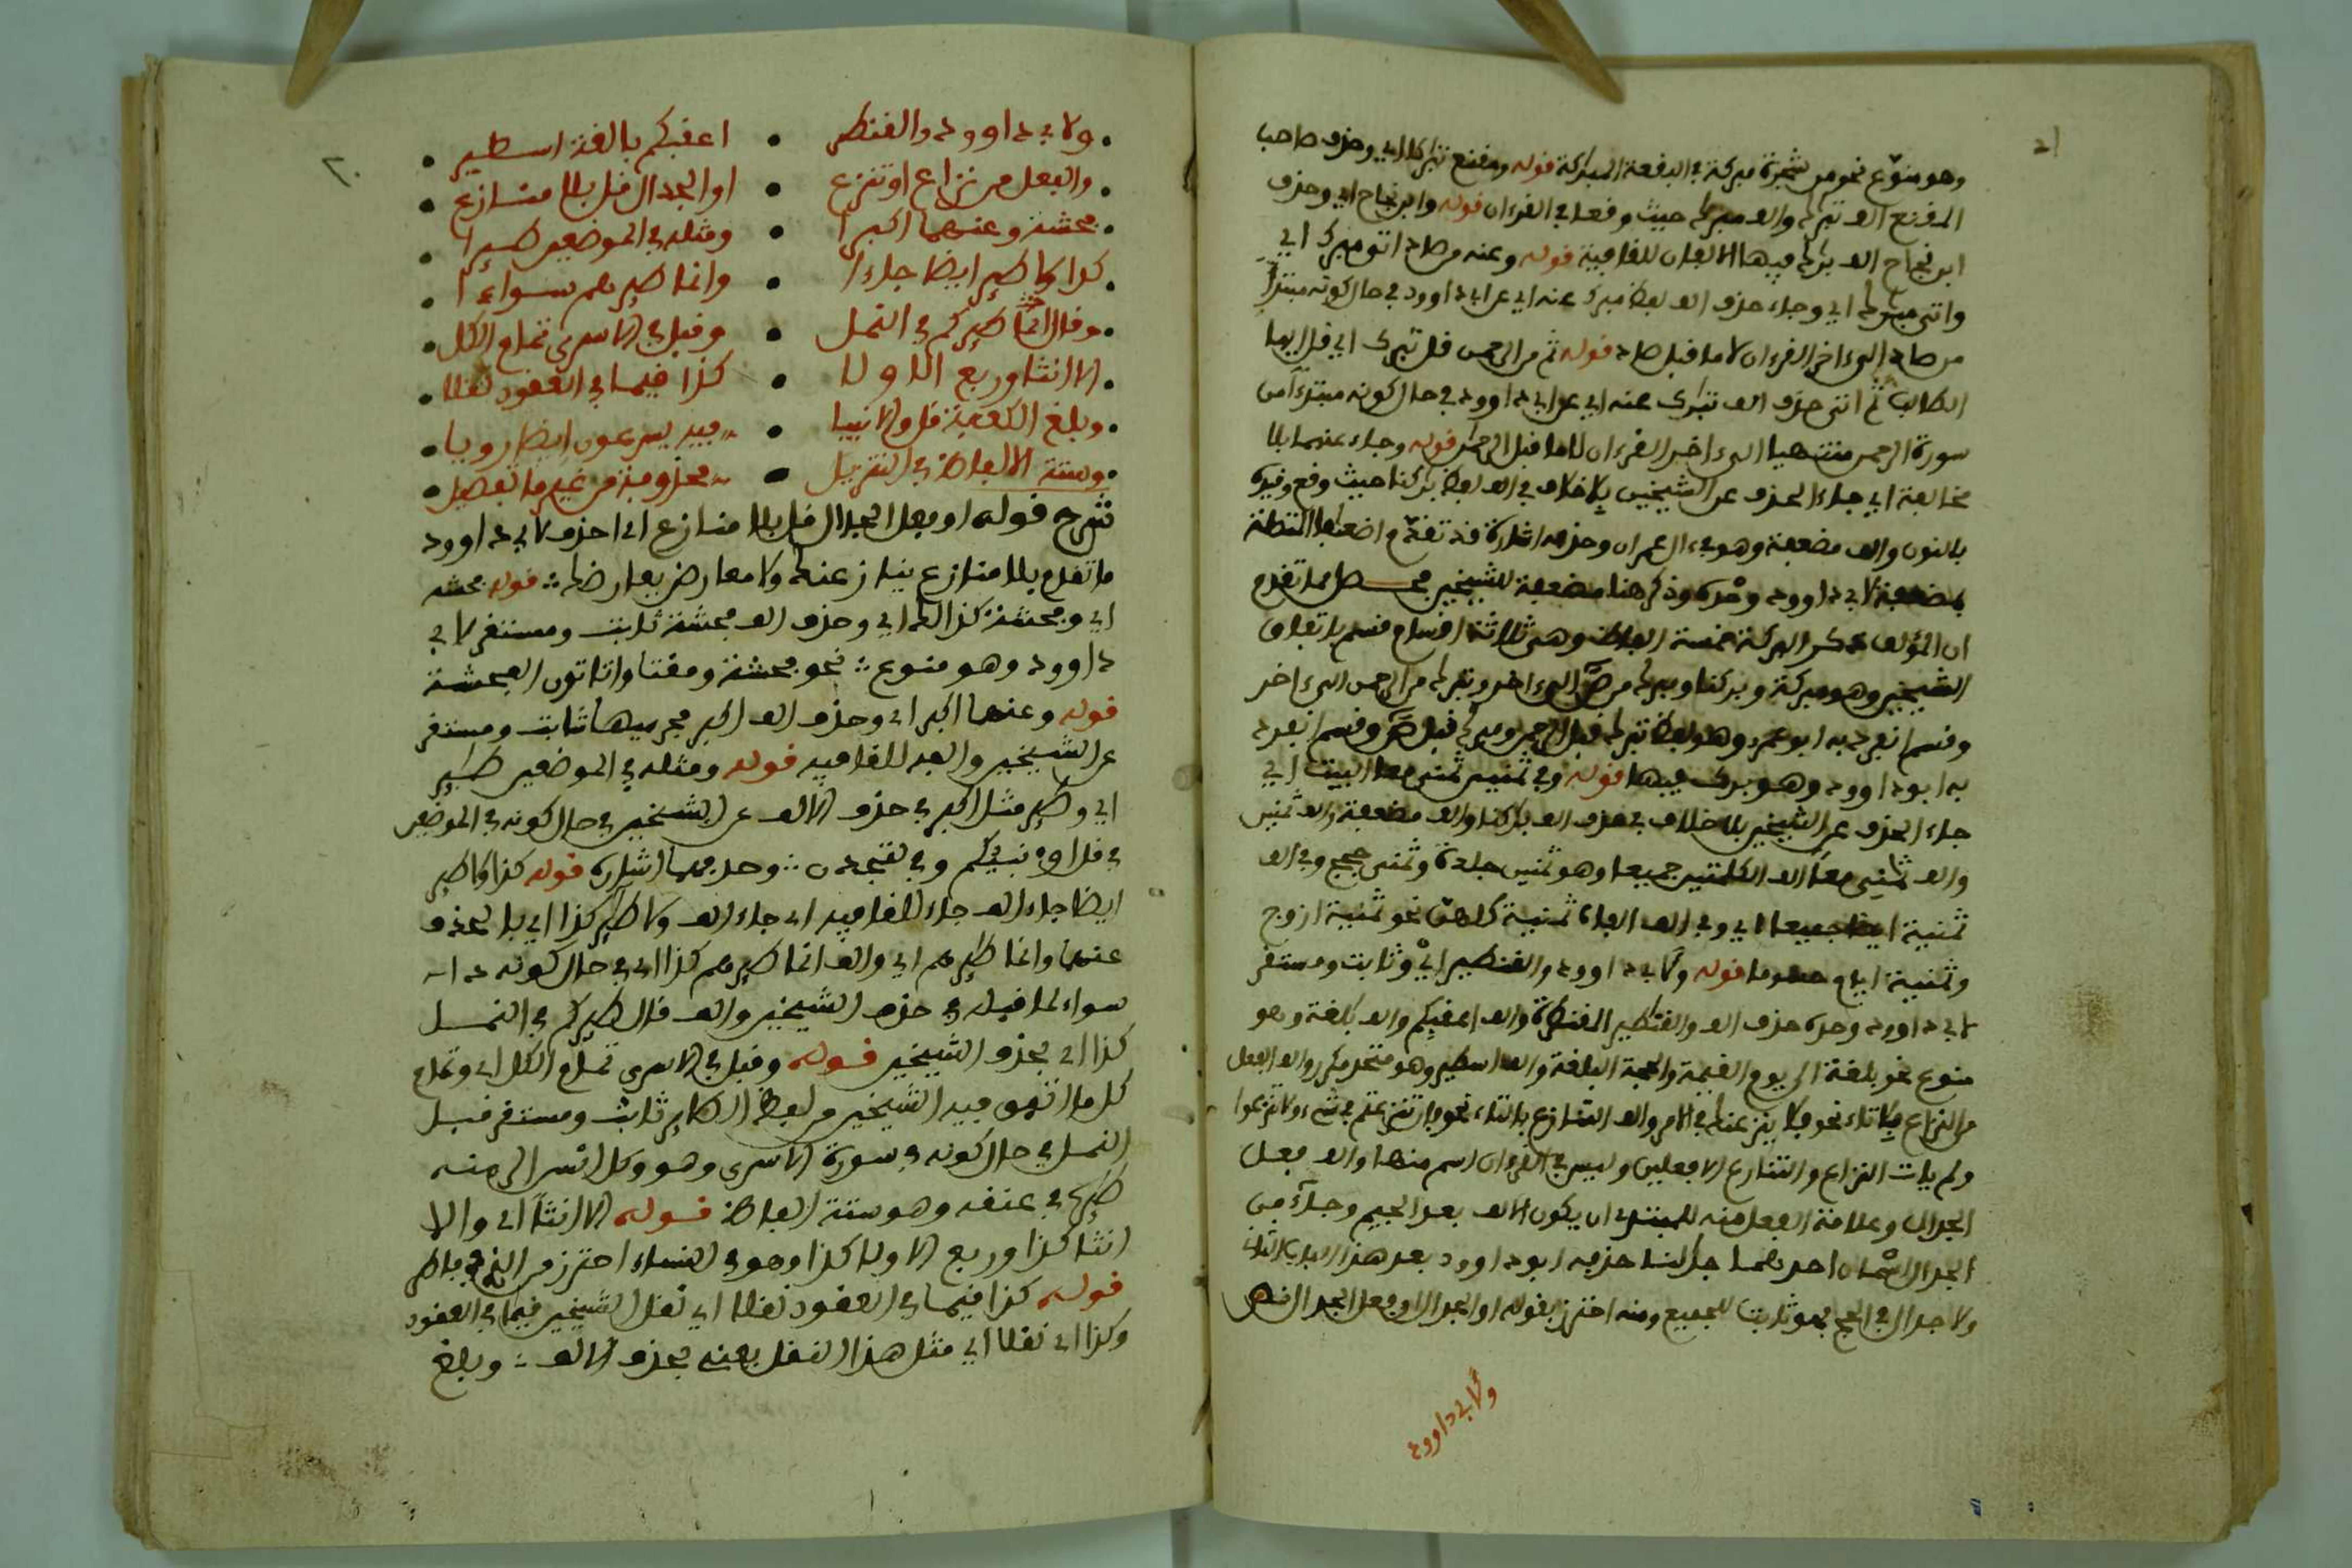 وهو منوع نحو من شجرة مبركة في البقعة المبركة قوله ومقنع تبرك اي وحذف صاحب
المقنع الف تبرك والف مبرك حيث وقعا في القرءان قوله وابن نجاح اي وحذف
ابن نجاح الف برك فيها الالف للقافية قوله وعنه من صاد اتى مبرك اي
واتى مبرك اي وجاء حذف الف لفظ مبرك عنه اي عن ابي داوود في حال كونه مبتدأ
من صاد الى ءاخر القرءان لا ما قبل صاد قوله ثم من الرحمن قل تبرك اي قل ايها
الطالب ثم اتى حذف الف تبرك عنه اي عن ابي داوود في حال كونه مبتدءا من
سورة الرحمن منتهيا الى ءاخر القرءان لا ما قبل الرحمن قوله وجاء عنهما بلا
مخالفة اي جاء الحذف عن الشيخين بلا خلاف في الف لفظ بركنا حيث وقع وقيده
بالنون والف مضعفة وهو في ءال عمران وحذفه اشارة قد تقدم اضعفا
مضعفة لابي داوود وحده وذكر هنا مضعفة للشيخين محصل مما تقدم
ان المؤلف ذكر البركة خمسة الفاظ وهي ثلاثة اقسام قسم باتفاق
الشيخين وهو مبركة وبركنا ومبرك من ص الى ءاخر وتبرك من الرحمن الى ءاخر
وقسم انفرد به ابو عمرو وهو لفظ تبرك قبل الرحمن ومبرك قبل ص وقسم انفرد
به ابو داوود وهو برك فيها قوله وفي ثمنين ثمني معا البيت اي
جاء الحذف عن الشيخين بلا خلاف في حذف الف بركنا والف مضعفة والف ثمنين
والف ثمني معا الف الكلمتين جميعا وهو ثمنين جلدة وثمني حجج وفي الف
ثمنية ايضا جميعا اي وفي الف الفاظ ثمنية كلهن نحو ثمنية ازوج
وثمنية ايام حسوما قوله ولابي داوود والقنطير اي وثابت ومستقر
لابي داوود وحده حذف الف والقنطير المقنطرة والف اعقبكم والف بلغة وهو
منوع نحو بلغة الى يوم القيمة والحجة البلغة والف اسطير وهو متحد مكرر والف الفعل
من النزاع بلا تاء نحو فلا ينزعنك في الامر والف التنازع بالتاء نحو فان تنزعتم في شيء ولا تنزعوا
ولم يات النزاع والتنازع الا فعلين وليس في القرءان اسم منهما والف فعل
الجدال وعلامة الفعل منه للمبتدئ ان يكون الالف بعد الجيم وجاء من
الجدال اسمان احدهما جدلنا حذفه ابو داوود بعد هذا
ولا جدال في الحج فهو ثابت للجميع ومنه احترز بقوله او الجدال او فعل الجدال
ولابي داوود
٢٠
ولابي داوود والقنطير • اعقبكم بالغة اسطير
والفعل من نزاع او تنزع • او الجدال قل بلا منازع
فحشة وعنهما اكبرا • ومثله في الموضعين طيرا
كذا ولا طير ايضا جاءا • وانما طيرهم سواءا
وقال طيركم في النمل • وقبل في الاسرى تمام الكل
الا انثا وربع الاولا • كذا قيما في العقود نقلا
وبلغ الكعبة قل والانبيا • فيه يسرعون ايضا رويا
وستة الالفاظ في التنزيل • محذوفة من غير ما تفصيل
شرح قوله او فعل الجدال قل بلا منازع اي احذف لابي داوود
ما تقدم بلا منازع ينازعنك ولا معارض يعارضك قوله فحشة
اي وفحشة كذالك اي وحذف الف فحشة ثابت ومستقر لابي
داوود وهو منوع نحو فحشة ومقتا واتاتون الفحشة
قوله وعنهما اكبرا اي وحذف الف اكبر مجرميها ثابت ومستقر
عن الشيخين والفه للقافيه قوله ومثله في الموضعين طير
اي وطير مثل اكبر في حذف الالف عن الشيخين في حال كونه في الموضعين
ايضا جاء الف جاء للقافيه اي جاء الف ولا طير كذا اي بالحذف
عنهما وانما طيرهم اي والف انما طيرهم كذا اي في حال كونه
سواء لما قبله في حذف الشيخين والف قال طيركم في النمل
كذا اي بحذف الشيخين قوله وقبل في الاسرى تمام الكل اي وتمام
كل ما اتفق فيه الشيخين من لفظ الطاير ثابت ومستقر قبل
النمل في حال كونه في سورة الاسرى وهو وكل انسن الزمنه
طيره في عنقه وهو ستة الفاظ قوله الا انثا اي والا
انثا كذا وربع الاولا كذا وهو في النساء احترز من الذي في فاطر
قوله كذا قيما في العقود نقلا اي نقل الشيخين قيما في العقود
وكذا اي نقلا اي مثل هذا النقل يعني بحذف الالف وبلغ